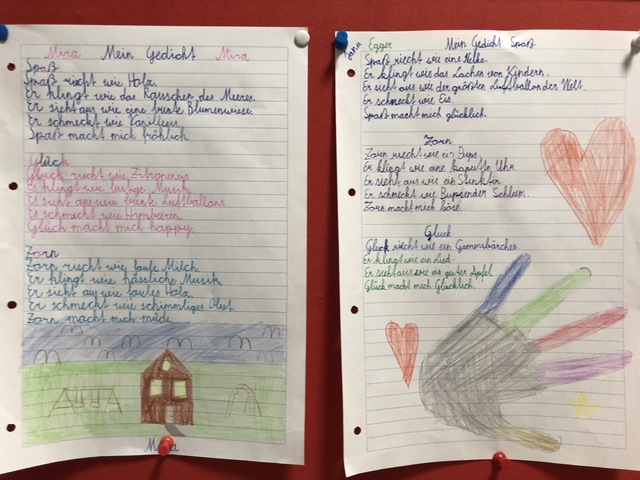 Mira Mein Gedicht Mira
Spaß
Spaß riecht wie Holz.
Er klingt wie das Rauschen des Meeres.
Er sieht aus wie eine bunte Blumenwiese
Er schmeckt wie
Spaß macht mich fröhlich.
Glück
Glück riecht wie Zitronen
Es klingt wie lustige Musik
Es sieht aus wie bunte Luftballons
Es schmeckt wie Himbeeren
Glück macht mich happy.
Zorn
Zorn riecht wie faule Milch.
Er klingt wie hässliche Musik.
Er sieht aus wie faules Holz.
Er schmeckt wie schimmliges Obst.
Zorn macht mich müde.
Mira
Jana Egger Mein Gedicht Spaß
Spaß riecht wie eine Nelke.
Er klingt wie das Lachen von Kindern.
Er sieht aus wie der größten Luftballon der Welt.
Er schmeckt wie Eis.
Spaß macht mich glücklich.
Zorn
Zorn riecht wie ein Pups.
Er klingt wie eine kaputte Uhr.
Er sieht aus wie ein Stinktir.
Er schmeckt wie Schleim.
Zorn macht mich böse.
Glück
Glück riecht wie ein Gummibärchen.
Er klingt wie ein Lied.
Er sieht aus wie ein guter Apfel
Glück macht mich Glücklich.